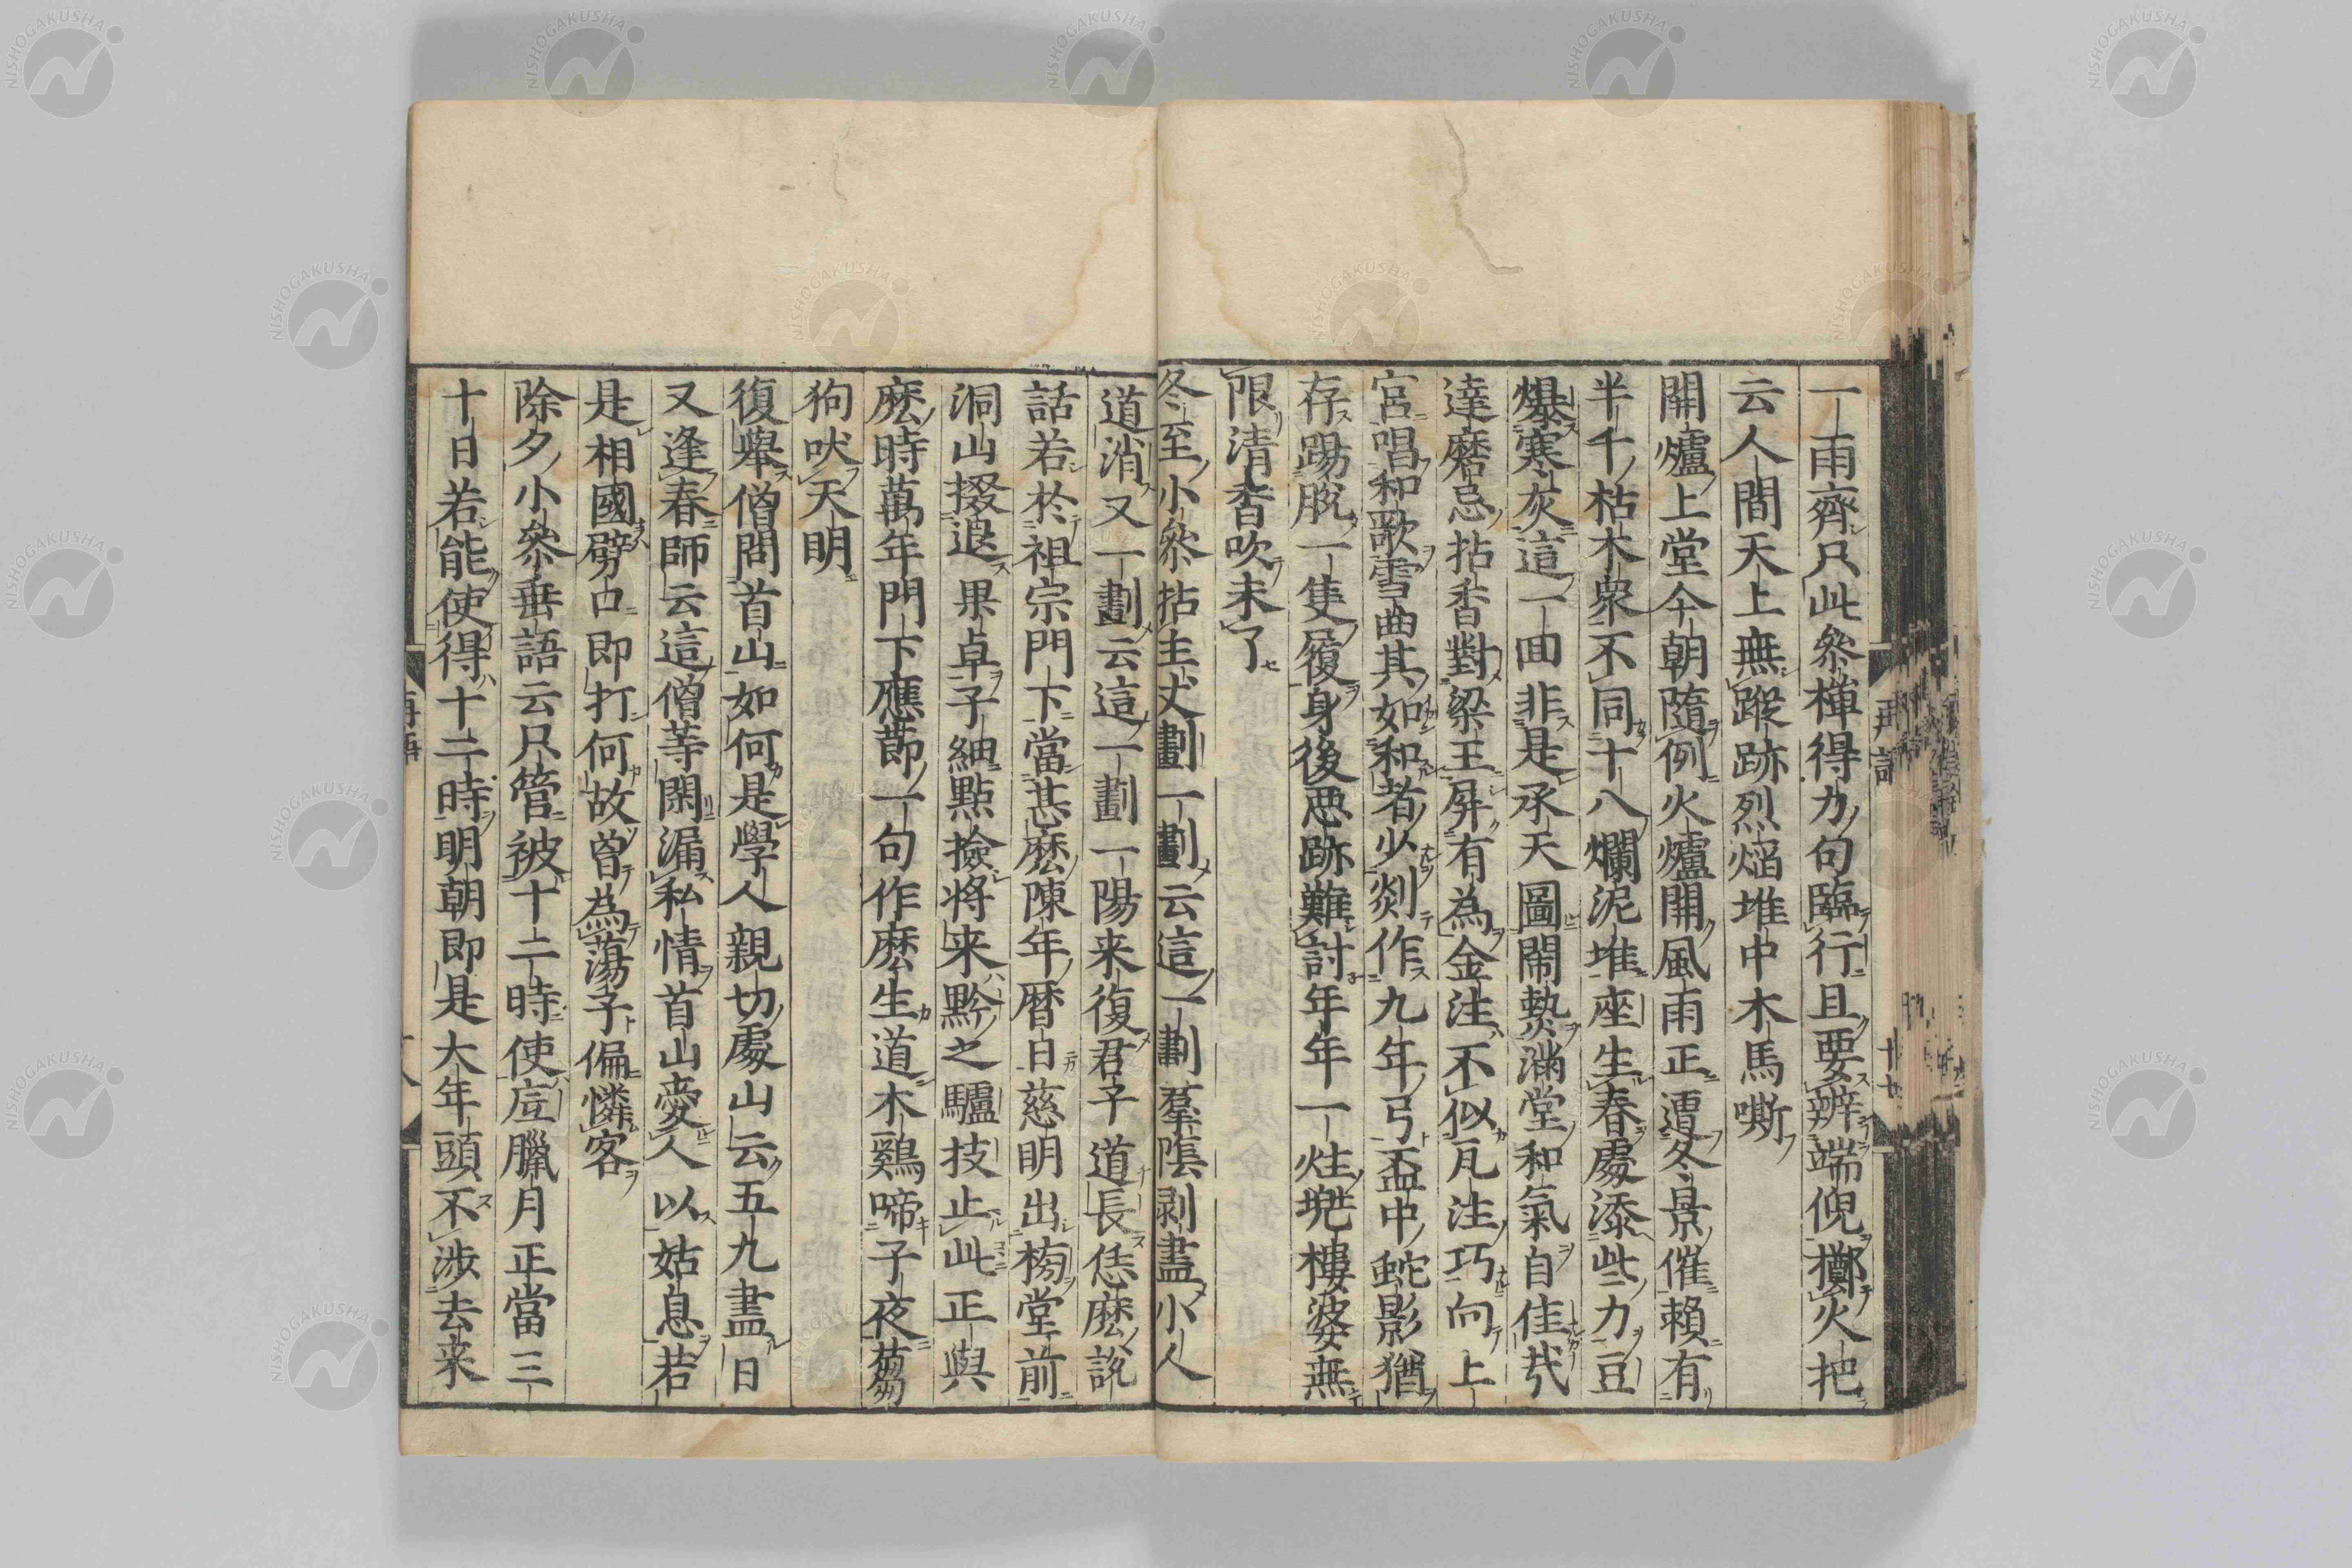 一雨齊只此參樺得力句臨行且要辨端倪擲火把
云人間天上無蹤跡烈焰堆中木馬嘶
開爐上堂今朝隨例火爐開風雨正遭冬景催賴有
半千枯木衆不同十八爛泥堆座生春處添些力豆
爆寒灰這一回非是承天圖鬧熱滿堂和氣自佳哉
達磨忌拈香對梁王屏有為金注不似瓦注巧向上
宮唱和歌雪曲其如和者少剡作九年弓盃中蛇影猶
存踢脫一隻履身後悪跡難討年年一炷兜樓婆無
限清香吹未了
冬至小參拈主丈劃一劃云這一劃羣陰剥盡小人
道消又一劃云這一劃一陽来復君子道長恁麽說
話若於祖宗門下當甚麽陳年曆日慈明出榜堂前
洞山掇退果卓子細點撿將来黔之驢技止此正與
麽時萬年門下應節一句作麽生道木鷄啼子夜芻
狗吠天明
復舉僧問首山如何是學人親切處山云五九盡日
又逢春師云這僧等閑漏私情首山愛人以姑息若
是相國劈口即打何故曾為蕩子偏憐客
除夕小參垂語云只管被十二時使㞐臘月正當三
十日若能使得十二時明朝即是大年頭不涉去来